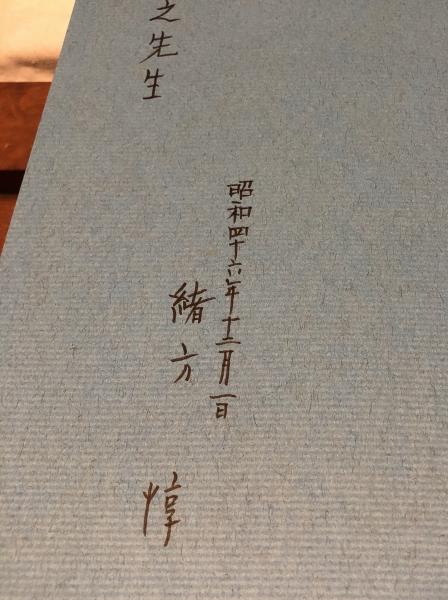 之先生
昭和四十六年十二月一日
緒方惇